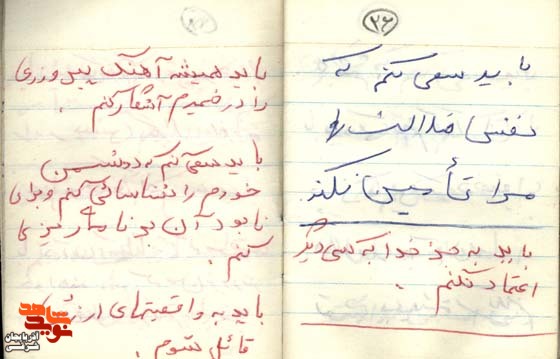 ۲۶
باید سعی کنم که
نفس ضلالت
مرا تأمین نکند
باید به جز خدا به کسی دیگر
اعتماد نکنم.
باید همیشه آهنگ پیروزی
را در ضمیرم آشکار کنم.
باید سعی کنم که دشمن
خودم را شناسائی کنم و برای
نابود آن برنامه ریزی
کنم.
باید به واقعیتهای
قائل شوم.
نوید شاهد
آذربایجان
غربی